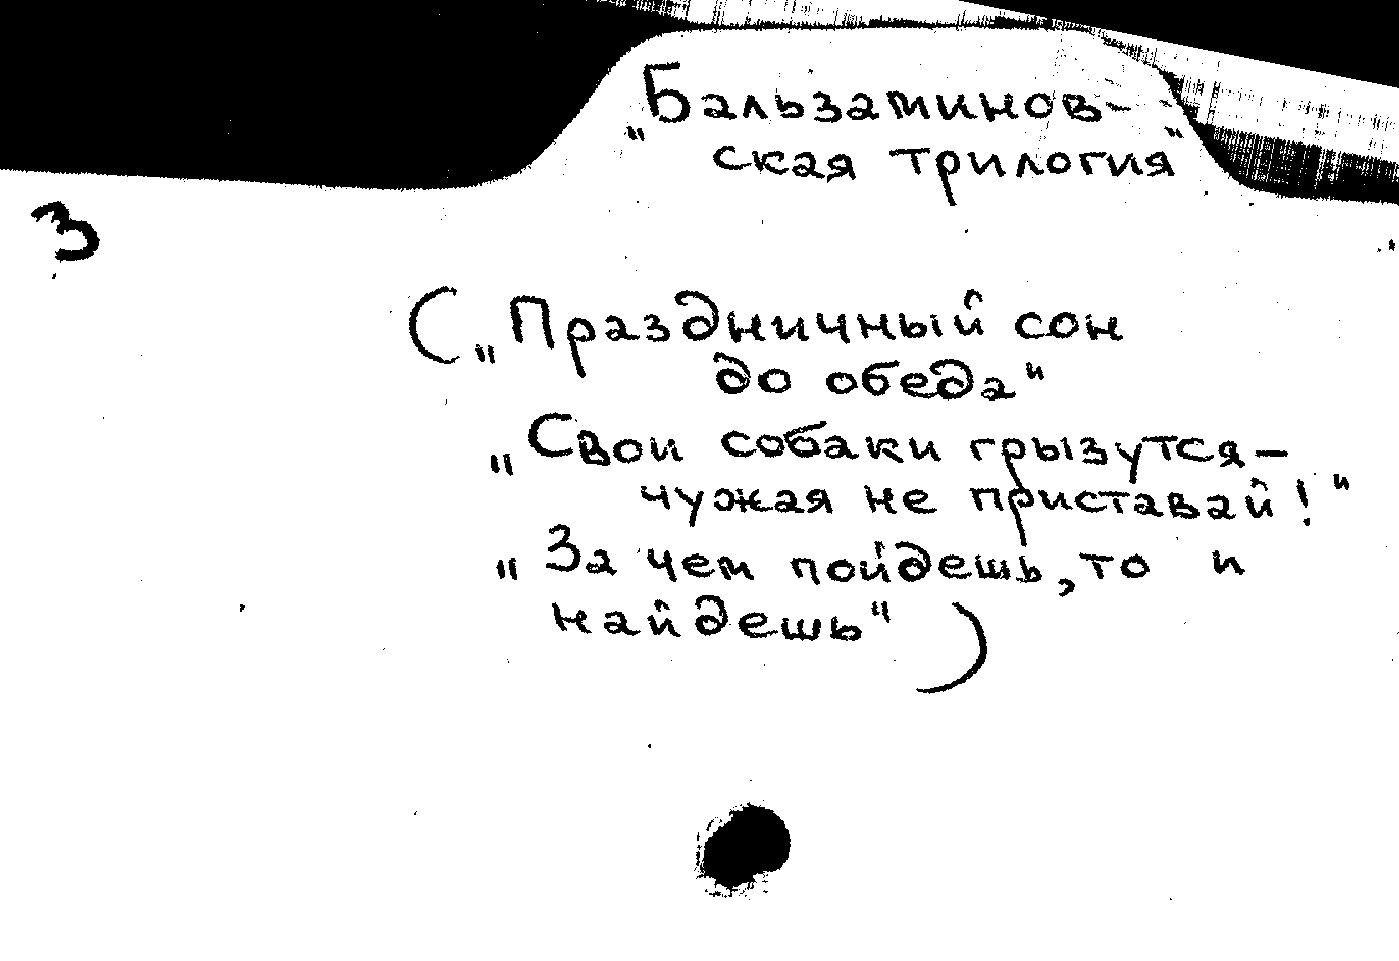 „Бальзаминов-
ская трилогия"
3
(„Праздничный сон
до обеда"
„Свои собаки грызутся –
чужая не приставай!"
„За чем пойдешь, то и
найдешь")